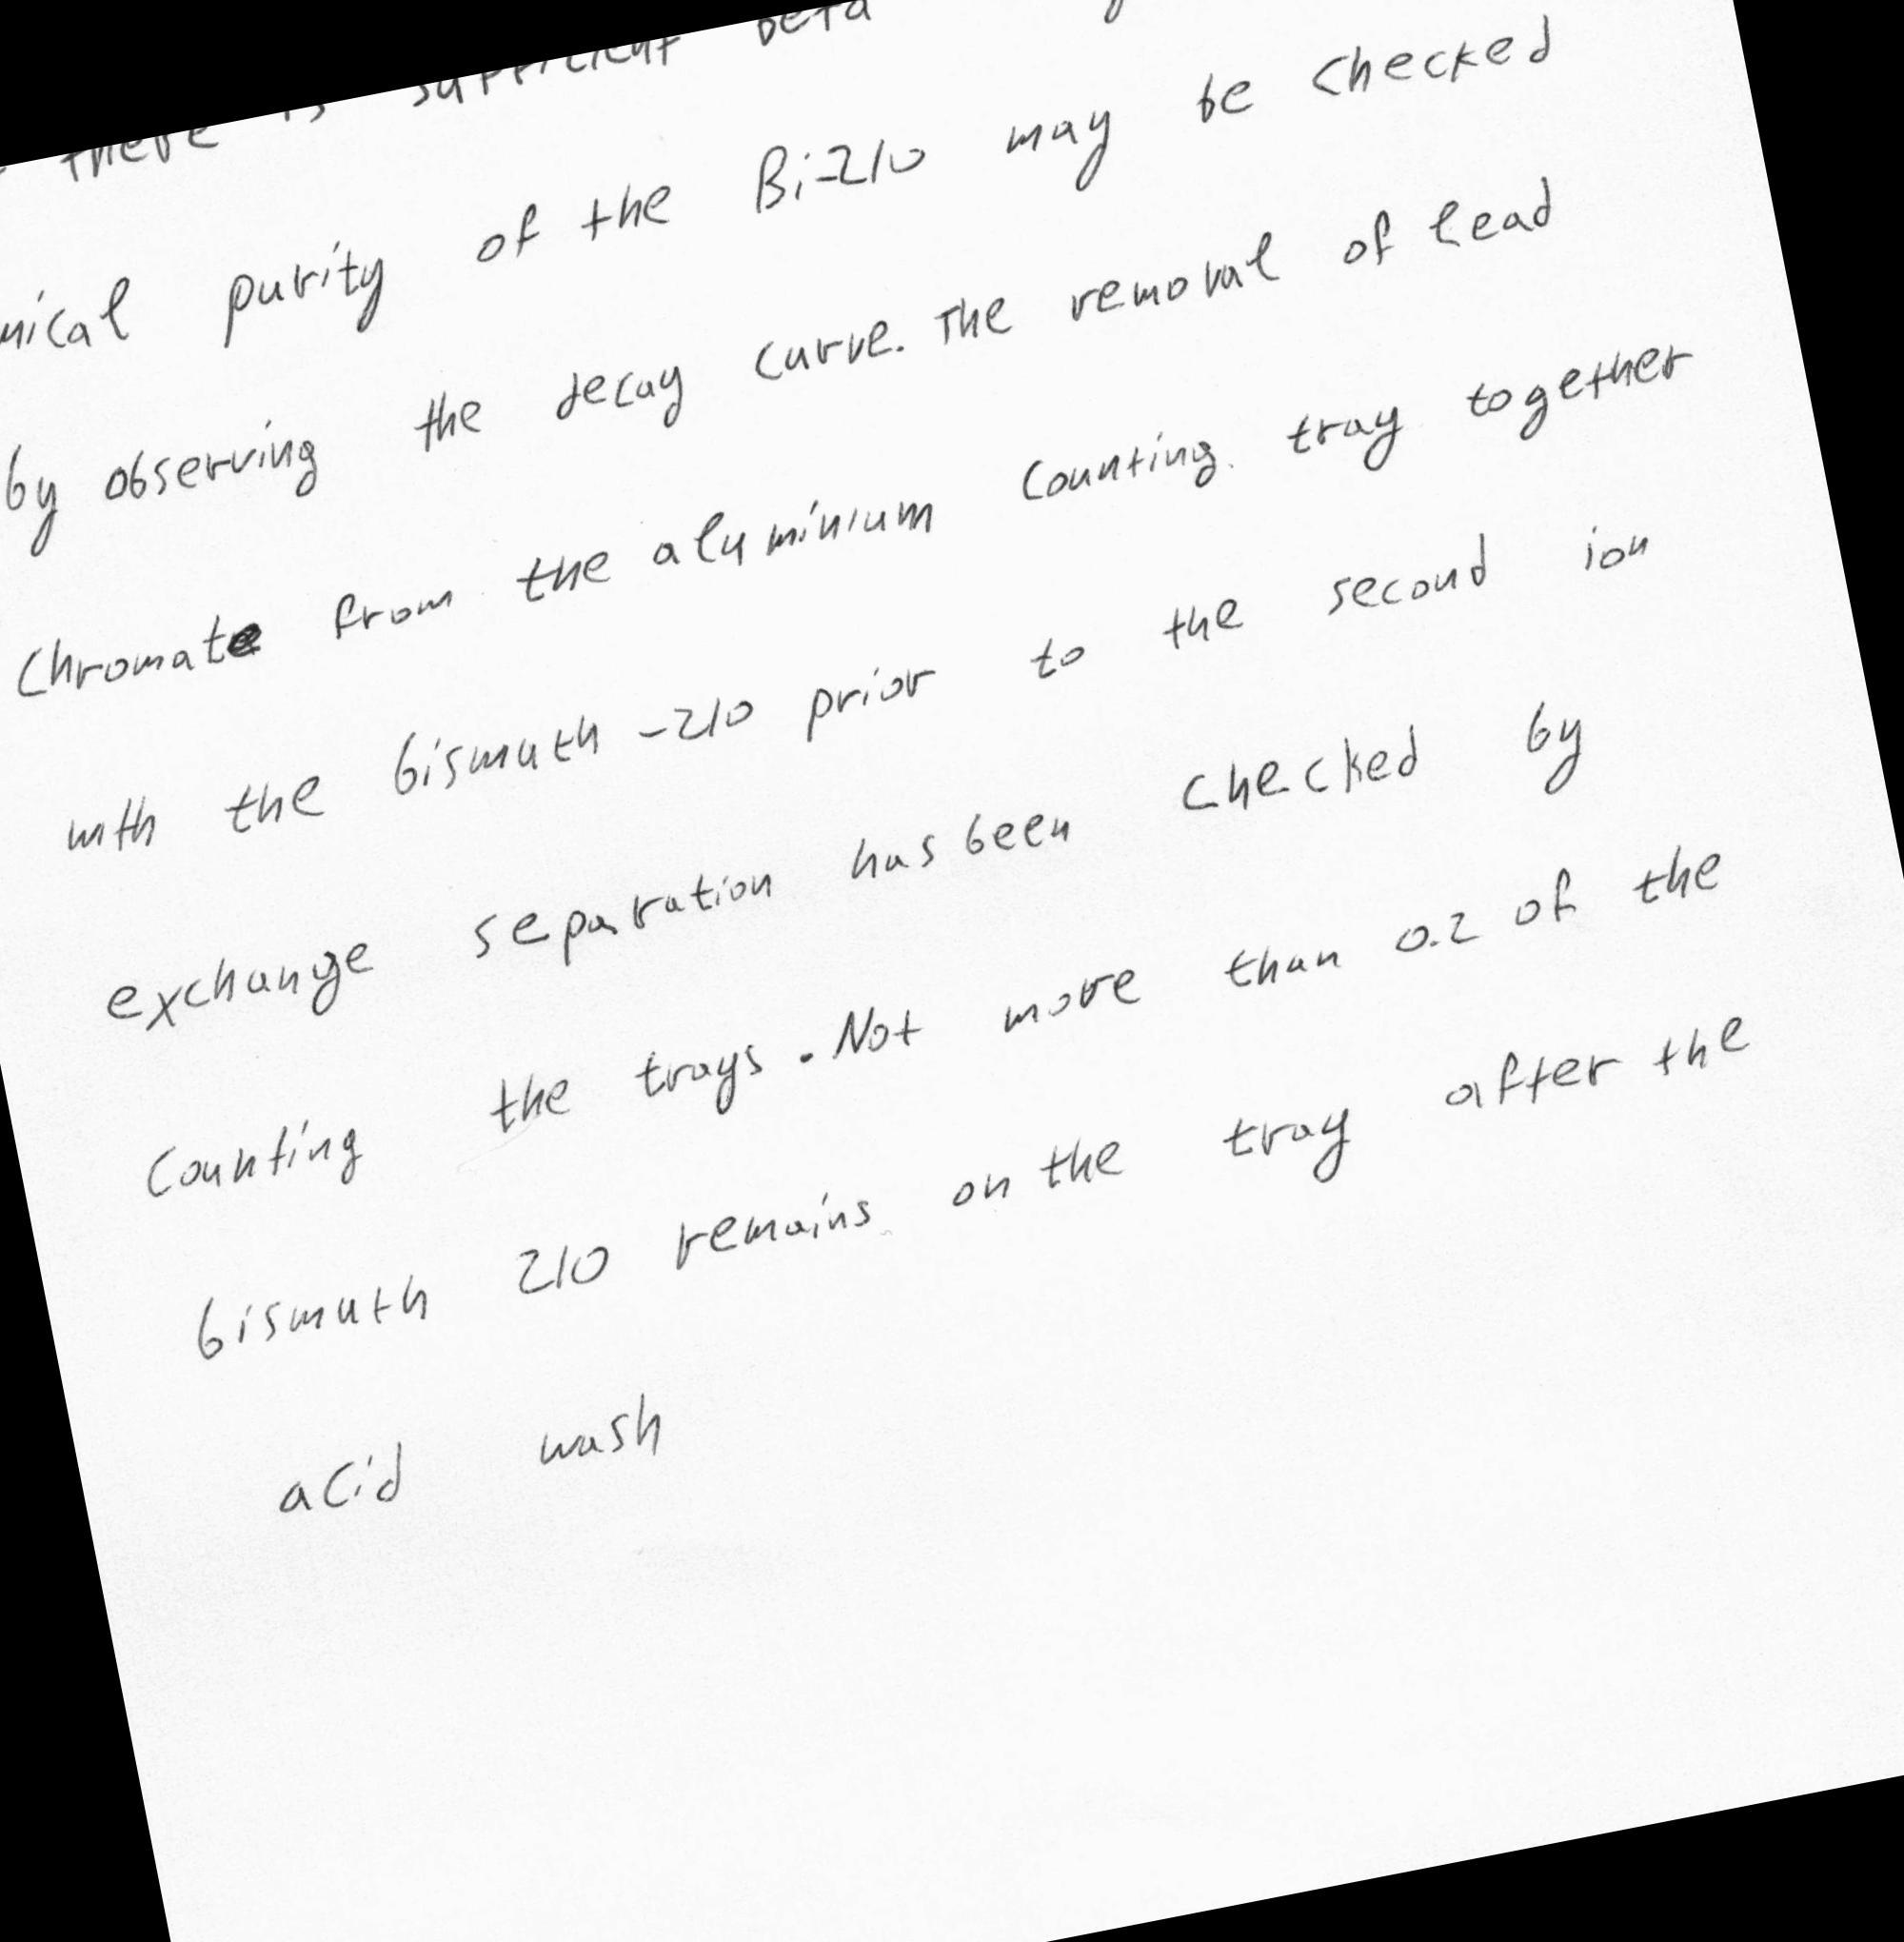 there is sufficient beta
mical purity of the Bi-210 may be checked
by observing the decay curve. The removal of lead
Chromate from the aluminium Counting tray together
with the bismuth -210 prior to the second ion
exchange separation has been checked by
Counting the trays. Not more than 0.2 of the
bismuth 210 remains on the tray after the
acid wash